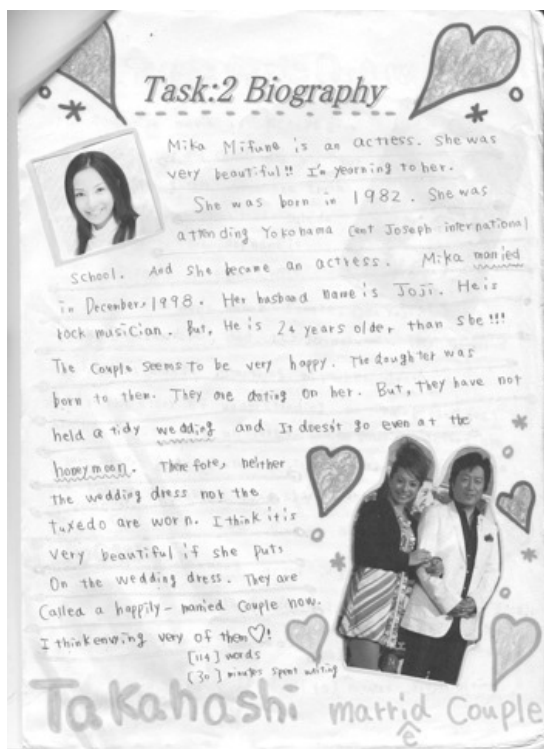 Task:2 Biography
Mika Mifune is an actress. She was
very beautiful!! I'm yearning to her.
She was born in 1982. She was
attending Yokohama cent Joseph international
school. And she become an actress. Mika married
in December, 1998. Her husband name is Joji. He is
rock musician. But, He is 24 years older than she!!!
The couple seems to be very happy. The daughter was
born to them. They are doting on her. But, they have not
held a tidy wedding and It doesn't go even at the
honeymoon. Therefore, neither
the wedding dress nor the
tuxedo are worn. I think it is
very beautiful if she puts
On the wedding dress. They are
Called a happily-married Couple now.
I think enving very of them♡!
[114] words
[30] minutes spent writing
Takahashi marrid Couple
e